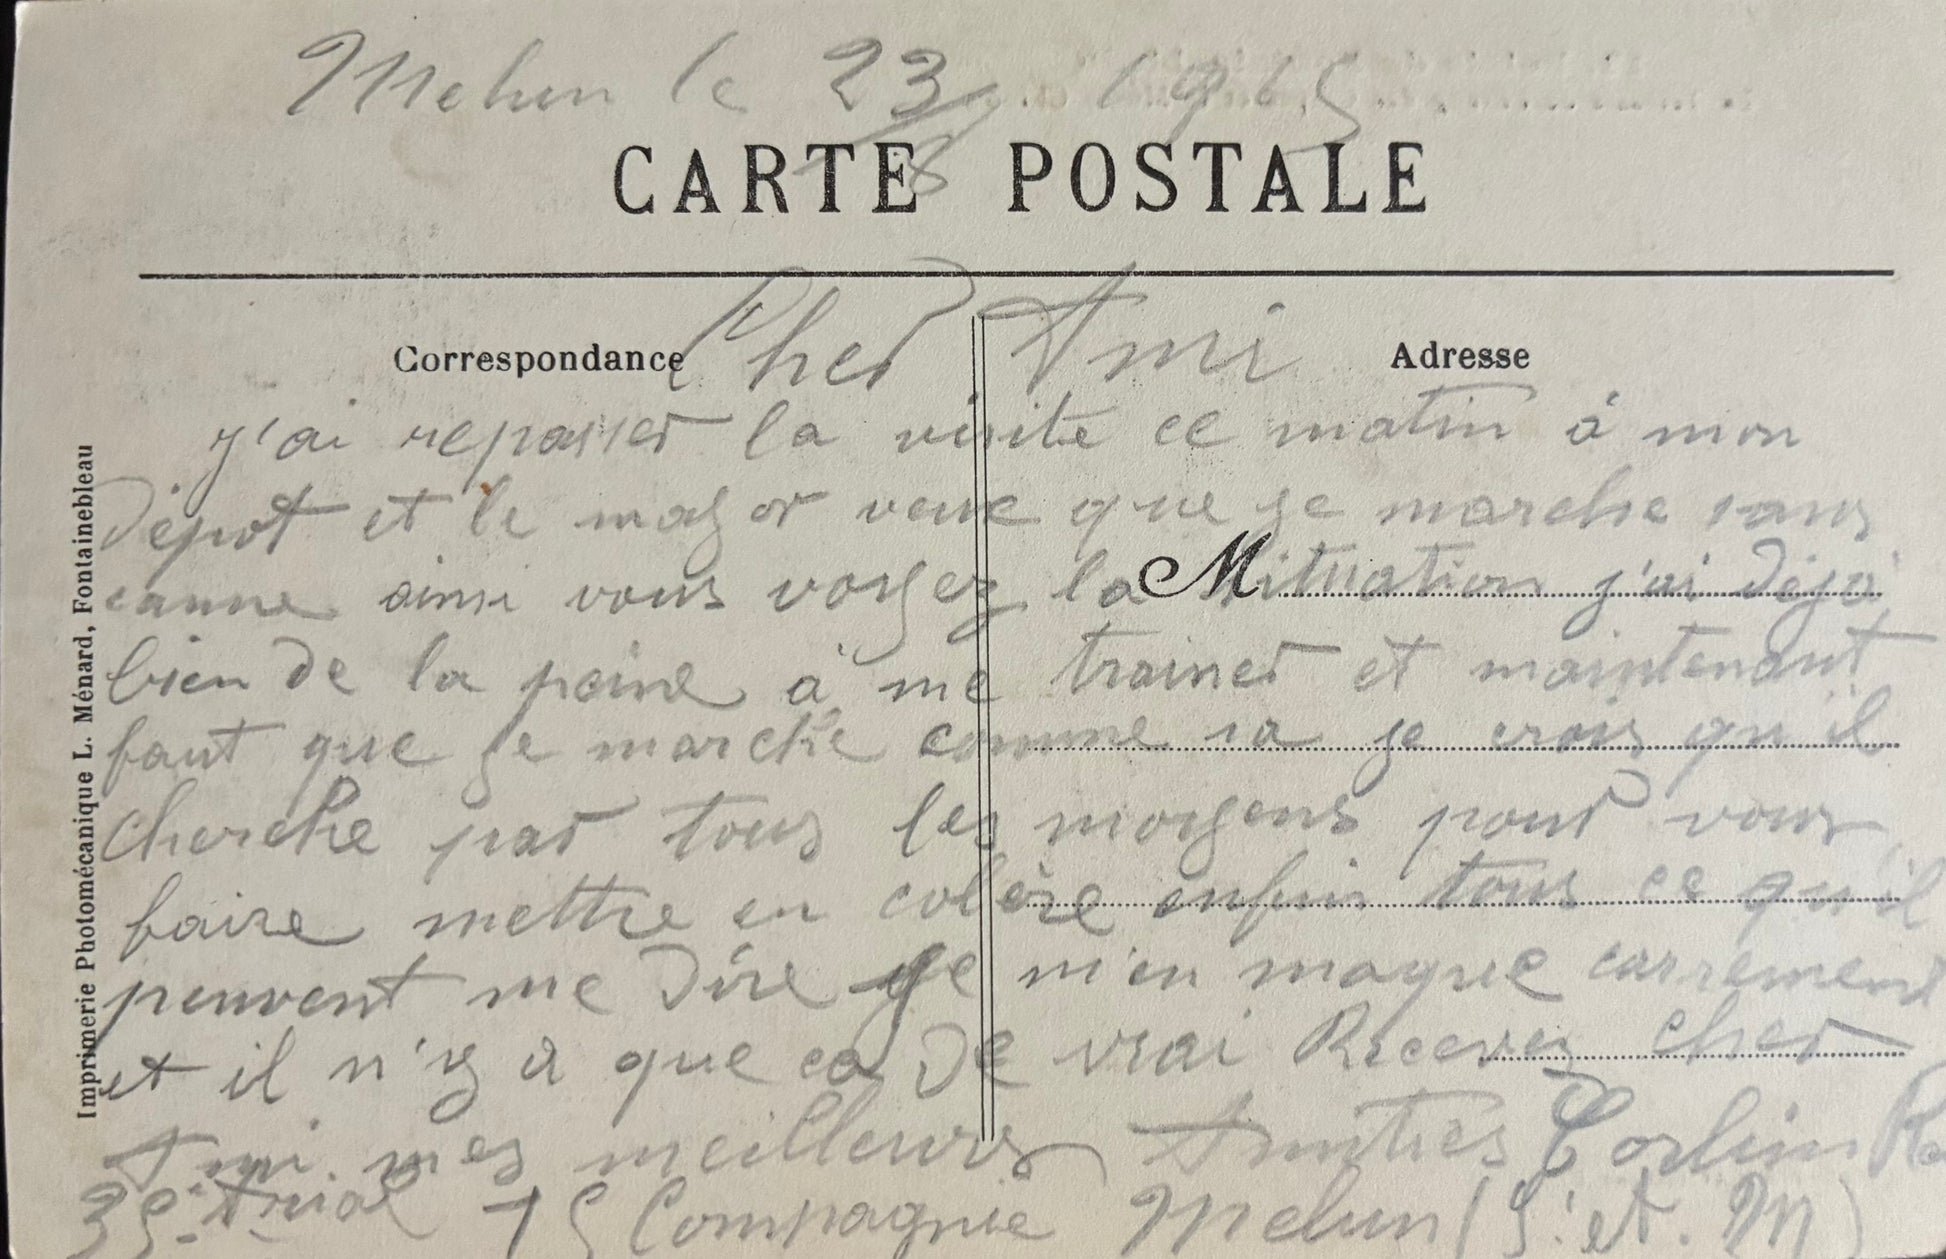 Melun le 23/8 1915
CARTE POSTALE
Cher Ami
Correspondance
Adresse
j'ai repasser la visite ce matin à mon
Dépot et le major veux que je marche sans
canne ainsi vous voyez la situation j'ai déjà
M
bien de la peine à me trainer et maintenant
faut que je marche comme sa je crois qu'il
cherche par tous les moyens pour vous
faire mettre en colère enfin tous ce qu'il
peuvent me dire je m'en moque carrement
et il n'y a que ca de vrai Recevez cher
Ami mes meilleurs Amities
35e 15 Compagnie Melun (S. et. M)
Imprimerie Photomécanique L. Ménard, Fontainebleau